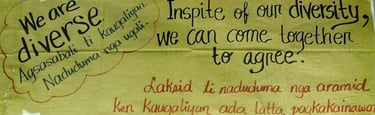 We are
diverse
Agsasabali ti kaugaliyan
Naduduma nga ugali.
Inspite of our diversity,
we can come together
to agree.
Laksid ti naduduma nga aramid
ken kaugaliyan ada latta pagkakainawan